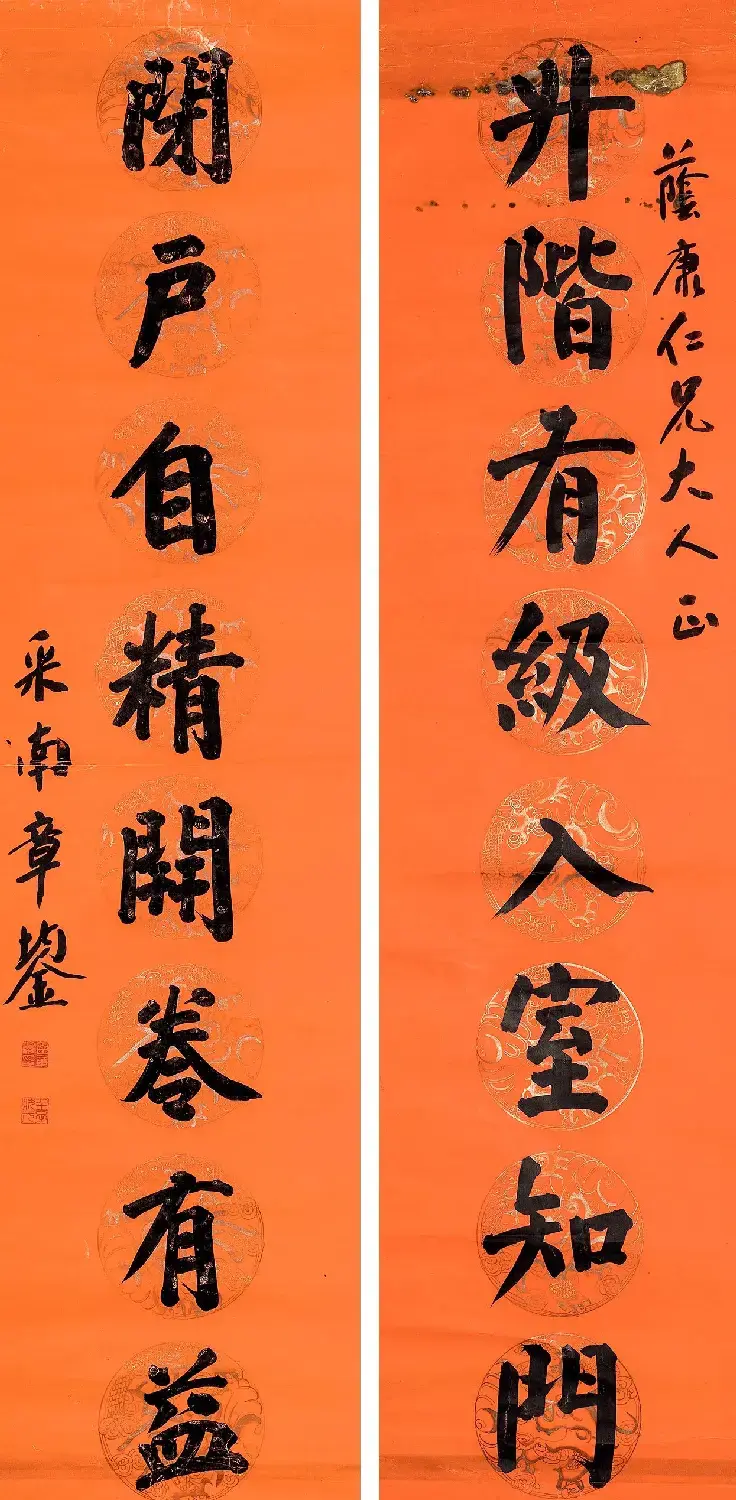 蔭康仁兄大人正
升階有級入室知門
閉戶自精開卷有益
采南章鋆